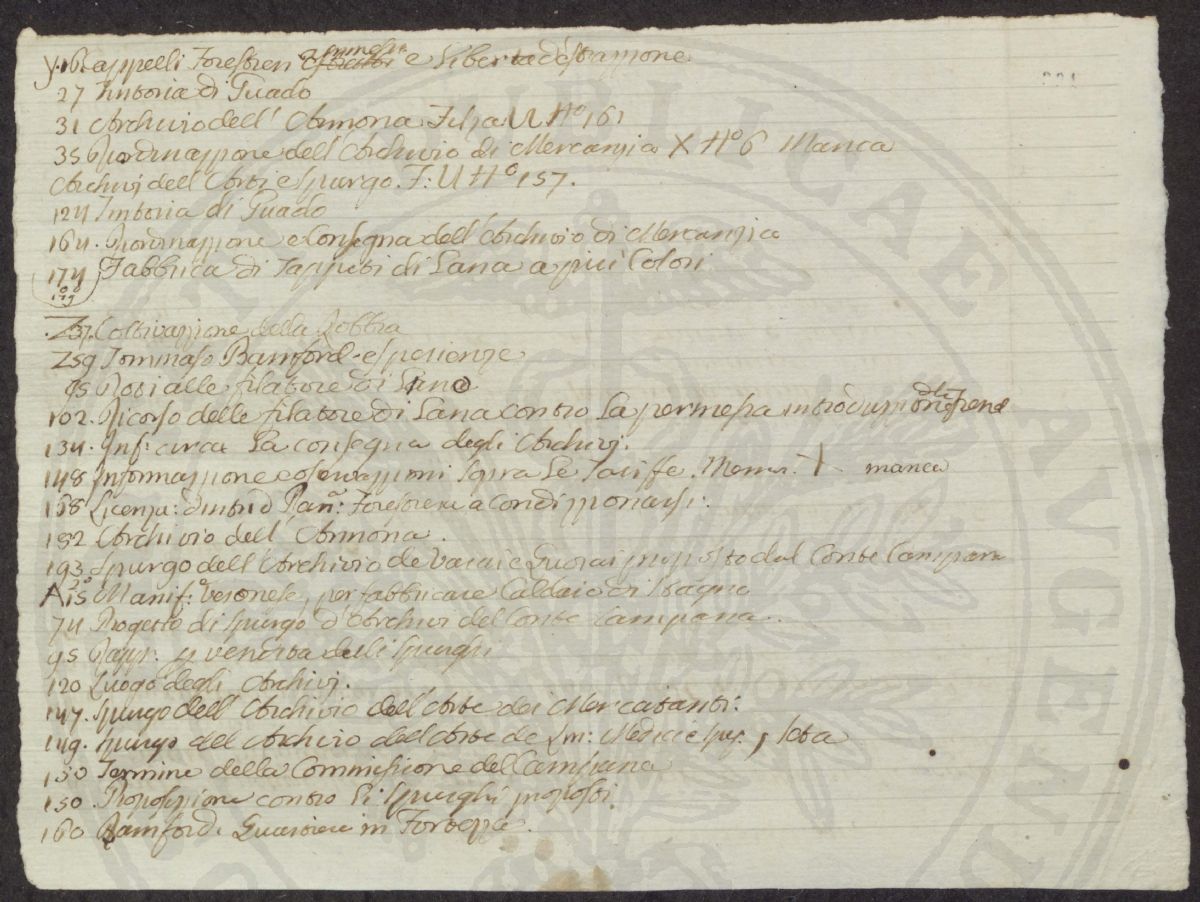 y. 16. appelli Forestieri e libertà d'estrazione
27 Tintoria di Guado
31 Archivio dell' Annona Filza U N.o 161
35 Riordinazzione dell' Archivio di Mercanzia X N.o 6 Manca
Archivj dell' Arti e spurgo. F: U N.o 157.
124 Tintoria di Guado
164. Riordinazzione e Consegna dell' Archivio di Mercanzia
174 Fabbrica di Tappeti di Lana a più Colori
179
237. Coltivazzione della Robbia
Z59 Tommaso Bamford esperienze
95 alle filatore di Lana
102. Ricorso delle filatore di Lana contro la permessa introduzzione
134. Inf: circa la consegna degli Archivj.
148 Informazzione e osservazzioni sopra le Tariffe. X manca
168 Licenza: Pan: Forestiere a Condizzionarsi:
182 Archivio dell' Annona.
193. Spurgo dell' Archivio de Vaiai e Cuoiai proposto dal Conte Campana
A 15 Manif: Veronese, per fabbricare Caldaio di Bagno
74 Progetto di spurgo d'Archivi del Conte Campana.
95 Rapp. p vendita delli spurghi
120 Luogo degli Archivj.
147. Spurgo dell' Archivio dell' Arte dei Mercatanti.
149. Spurgo del Archivio dell' Arte de Medici e Spez., Seta
150 Termine della Commissione del Campana
150 Proposizzione contro li spurghi proposti
160 Bamford. in Fortezza.